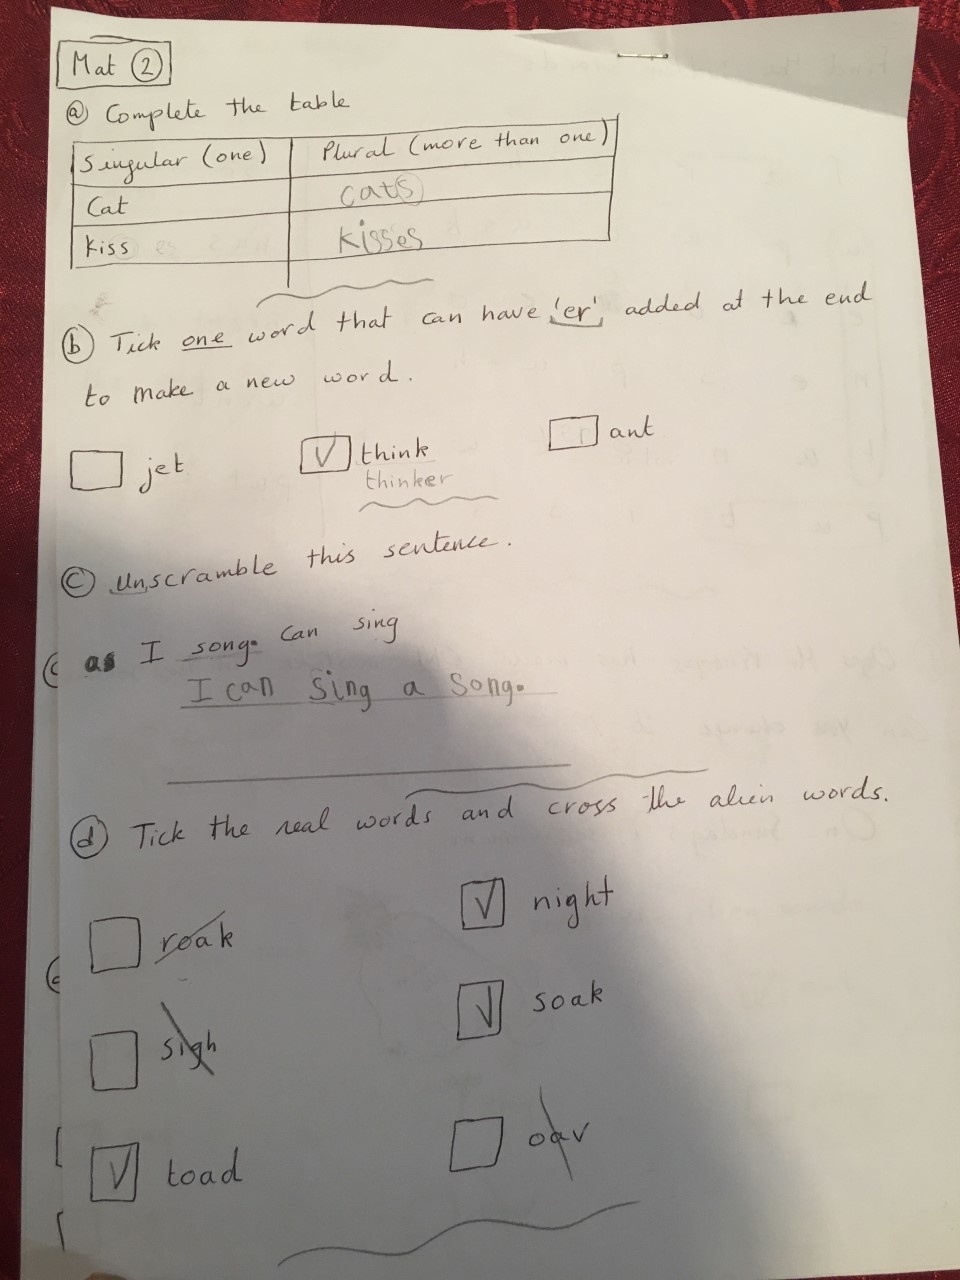 Mat 2
a Complete the table
Singular (one) Plural (more than one)
Cat cats
kiss kisses
b Tick one word that can have 'er' added at the end
to make a new word.
jet think ant
thinker
c Unscramble this sentence.
I song. Can sing
I can sing a song.
d Tick the real words and cross the alien words.
roak night
sigh soak
toad oav